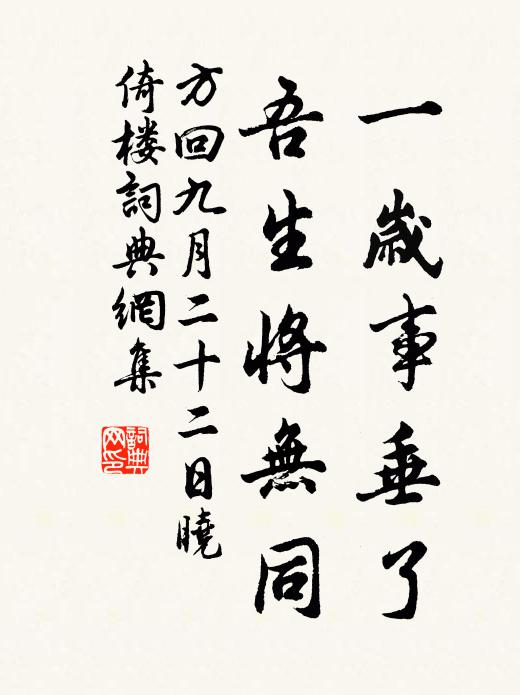 一歲事垂了
吾生將無同
方回九月二十二日曉
倚樓詞典網集
詞典
网印